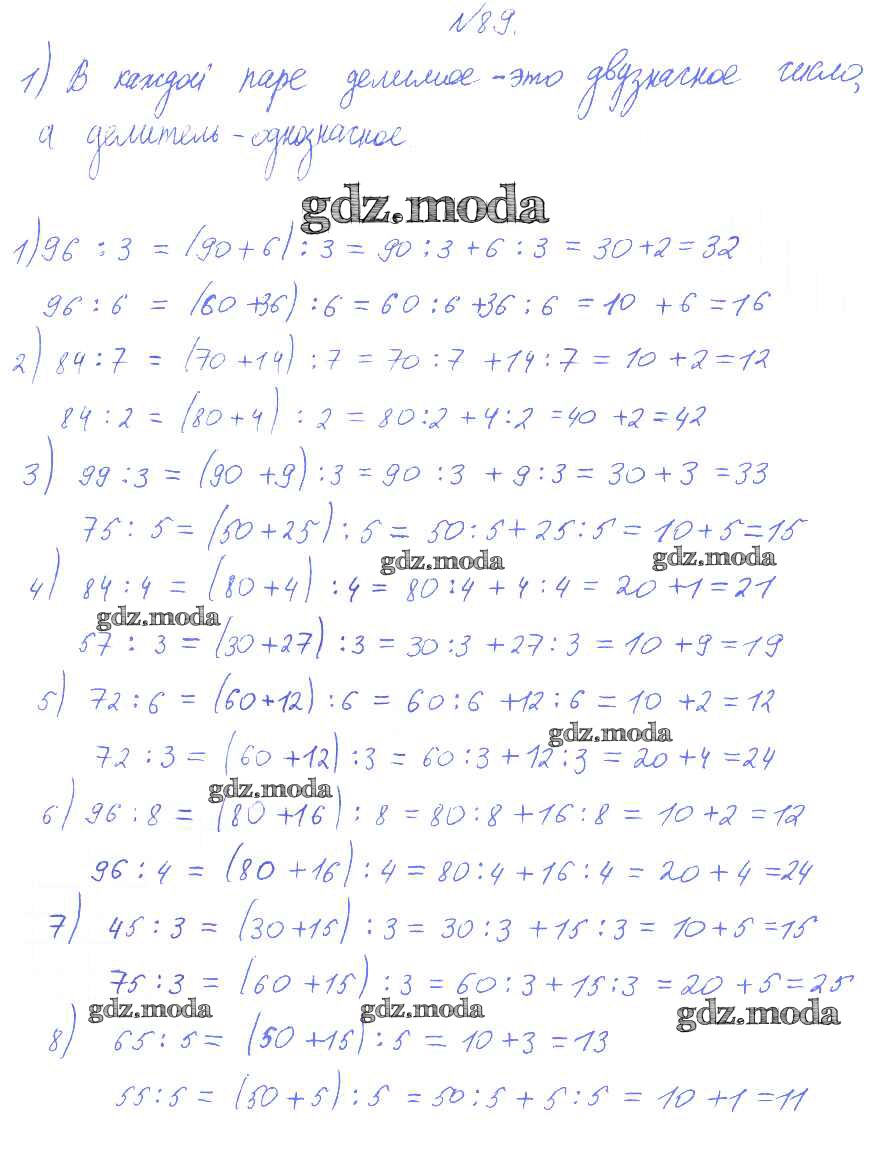 №89.
1) В каждой паре делимое - это двузначное число,
а делитель - однозначное
gdz.moda
1) 96 : 3 = (90+6) : 3 = 90 : 3 + 6 : 3 = 30+2 = 32
96 : 6 = (60+36) : 6 = 60 : 6 + 36 : 6 = 10 + 6 = 16
2) 84 : 7 = (70+14) : 7 = 70 : 7 + 14 : 7 = 10 + 2 = 12
84 : 2 = (80+4) : 2 = 80:2 + 4:2 = 40 + 2 = 42
3) 99 : 3 = (90+9) : 3 = 90 : 3 + 9 : 3 = 30 + 3 = 33
75 : 5 = (50+25) : 5 = 50 : 5 + 25 : 5 = 10 + 5 = 15
gdz.moda gdz.moda
4) 84 : 4 = (80+4) : 4 = 80:4 + 4 : 4 = 20 + 1 = 21
gdz.moda
57 : 3 = (30+27) : 3 = 30:3 + 27 : 3 = 10 + 9 = 19
5) 72 : 6 = (60+12) : 6 = 60 : 6 + 12 : 6 = 10 + 2 = 12
gdz.moda
72 : 3 = (60+12) : 3 = 60 : 3 + 12 : 3 = 20 + 4 = 24
gdz.moda
6) 96 : 8 = (80+16) : 8 = 80 : 8 + 16 : 8 = 10 + 2 = 12
96 : 4 = (80+16) : 4 = 80 : 4 + 16 : 4 = 20 + 4 = 24
7) 45 : 3 = (30+15) : 3 = 30 : 3 + 15 : 3 = 10 + 5 = 15
75 : 3 = (60+15) : 3 = 60 : 3 + 15 : 3 = 20 + 5 = 25
gdz.moda gdz.moda gdz.moda
8) 65 : 5 = (50+15) : 5 = 10 + 3 = 13
55 : 5 = (50+5) : 5 = 50 : 5 + 5 : 5 = 10 + 1 = 11